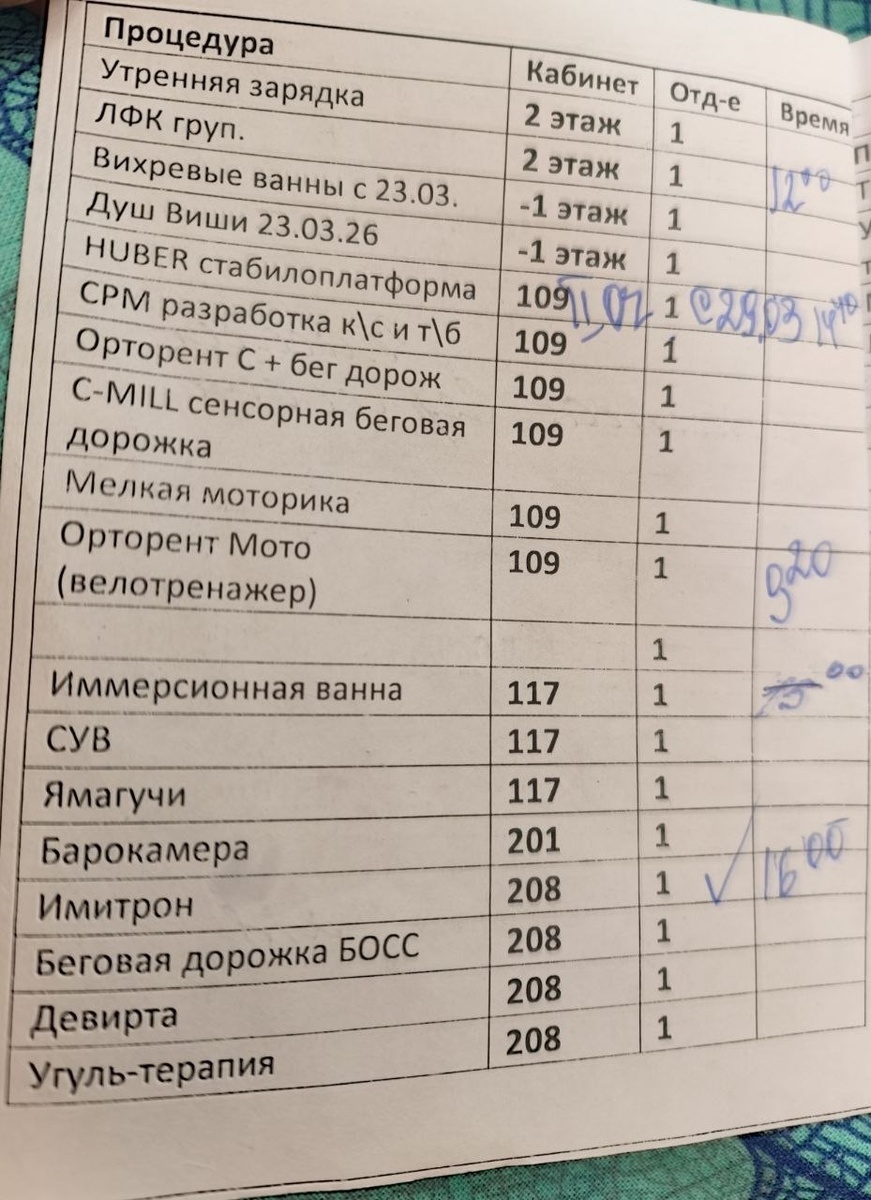 Процедура Кабинет Отд-е Время
Утренняя зарядка 2 этаж 1
ЛФК груп. 2 этаж 1 12⁰⁰
Вихревые ванны с 23.03. -1 этаж 1
Душ Виши 23.03.26 -1 этаж 1
HUBER стабилоплатформа 109 1 с 29.03 14¹⁰
CPM разработка к\с и т\б 109 1
Орторент С + бег дорож 109 1
C-MILL сенсорная беговая 109 1
дорожка
Мелкая моторика 109 1
Орторент Мото 109 1 9²⁰
(велотренажер)
1
Иммерсионная ванна 117 1
СУВ 117 1
Ямагучи 117 1
Барокамера 201 1
Имитрон 208 1 ✓ 16⁰⁰
Беговая дорожка БОСС 208 1
Девирта 208 1
Угуль-терапия 208 1